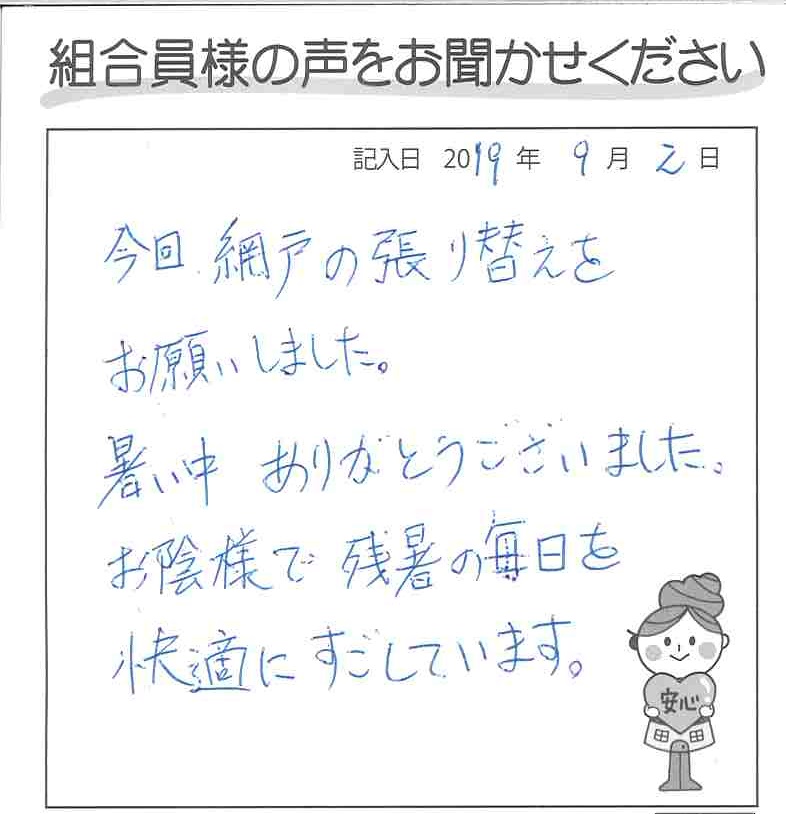 組合員様の声をお聞かせください
記入日 2019年 9月 2日
今回 網戸の張り替えを
お願いしました。
暑い中 ありがとうございました。
お陰様で 残暑の毎日を
快適にすごしています。
安心